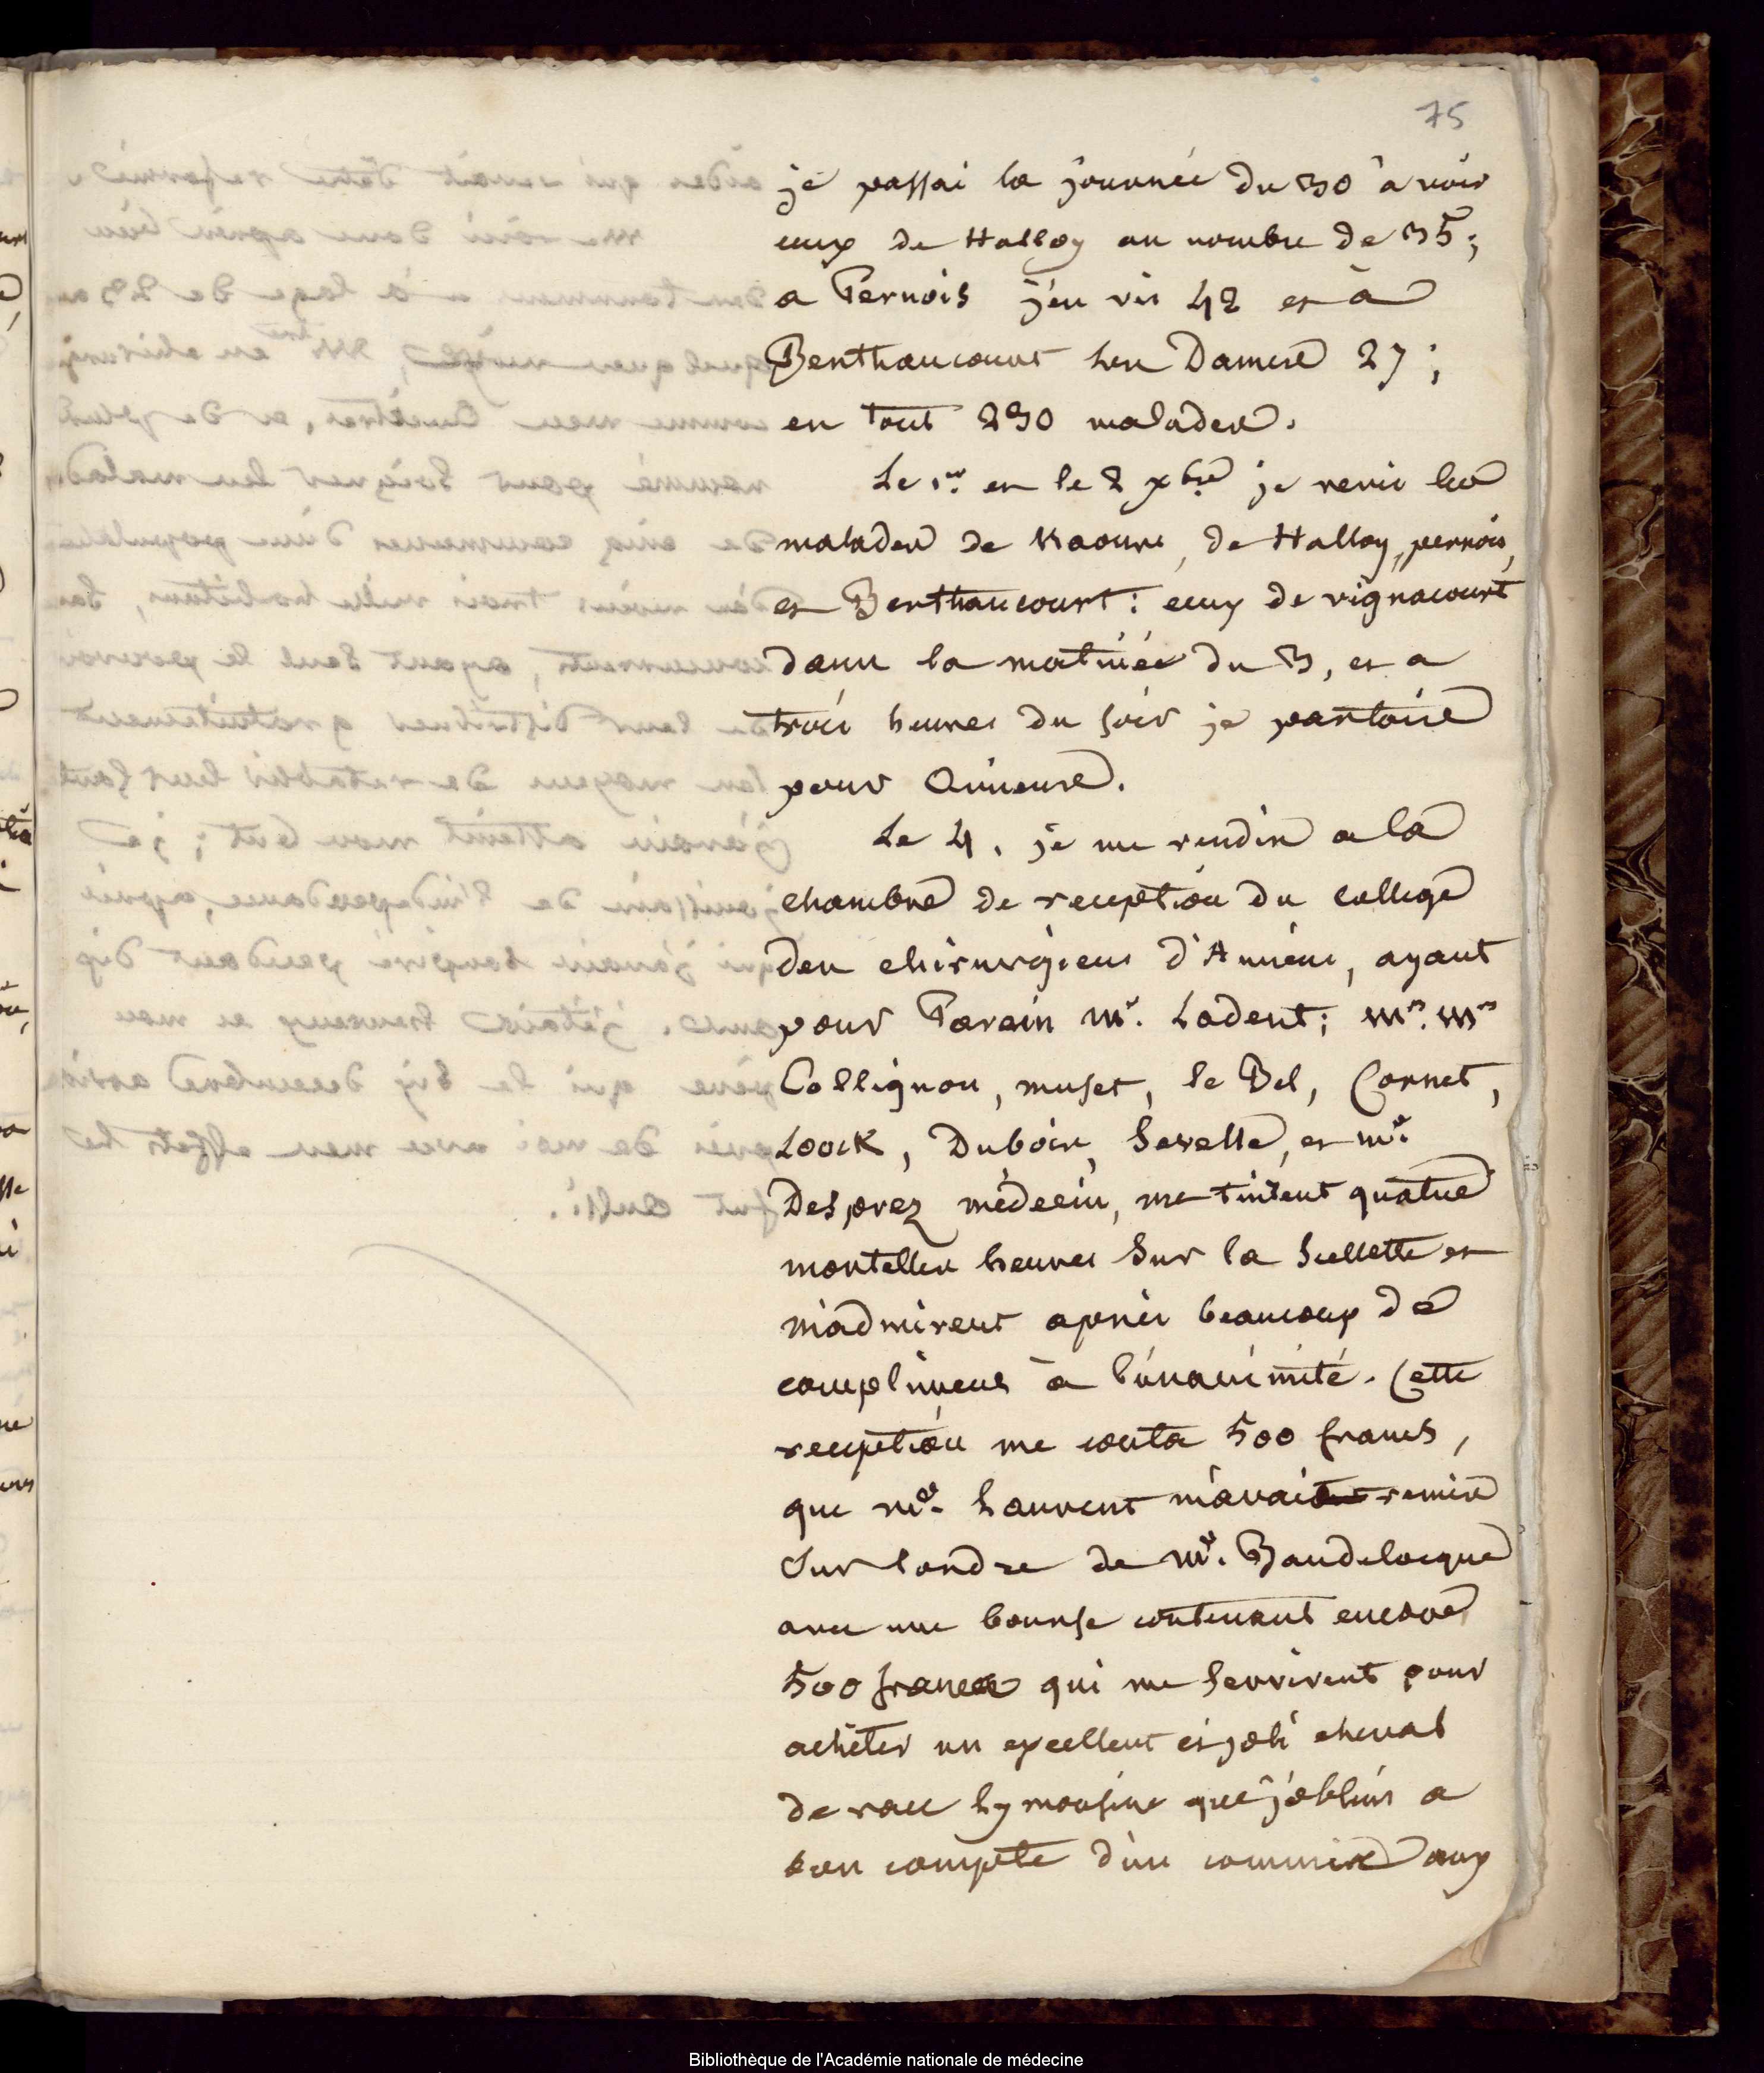 75
je passai la journée du 30 à voir
ceux de Halloy au nombre de 35;
a Pernois j'en vis 42 et à
Berthaucourt les Dames 27;
en tout 230 malades.
Le 1er. et le 2 xbre je revis les
malades de Kaours, de Halloy, pernois,
et Berthaucourt: ceux de vignacourt
dans la matinée du 3, et a
trois heures du soir je partois
pour Amiens.
Le 4. je me rendis a la
chambre de reception du college
des chirurgiens d'Amiens, ayant
pour Parain mr. Ladent; mrs. mrs
Collignon, muset, le Bel, Cornet,
Loock, Dubois, Sevelle, et mr.
Desprez médecin, me tinrent quatre
mortelles heures sur la sellette et
m'admirent après beaucoup de
complimens à l'unanimité. Cette
reception me couta 500 francs,
que mde. Laurent m'avait remis
sur l'ordre de mr. Baudelocque
avec une bourse contenant encore
500 francs qui me servirent pour
achêter un excellent et joli cheval
de race lymousine que j'obtins a
bon compte d'un commis aux
Bibliothèque de l'Académie nationale de médecine